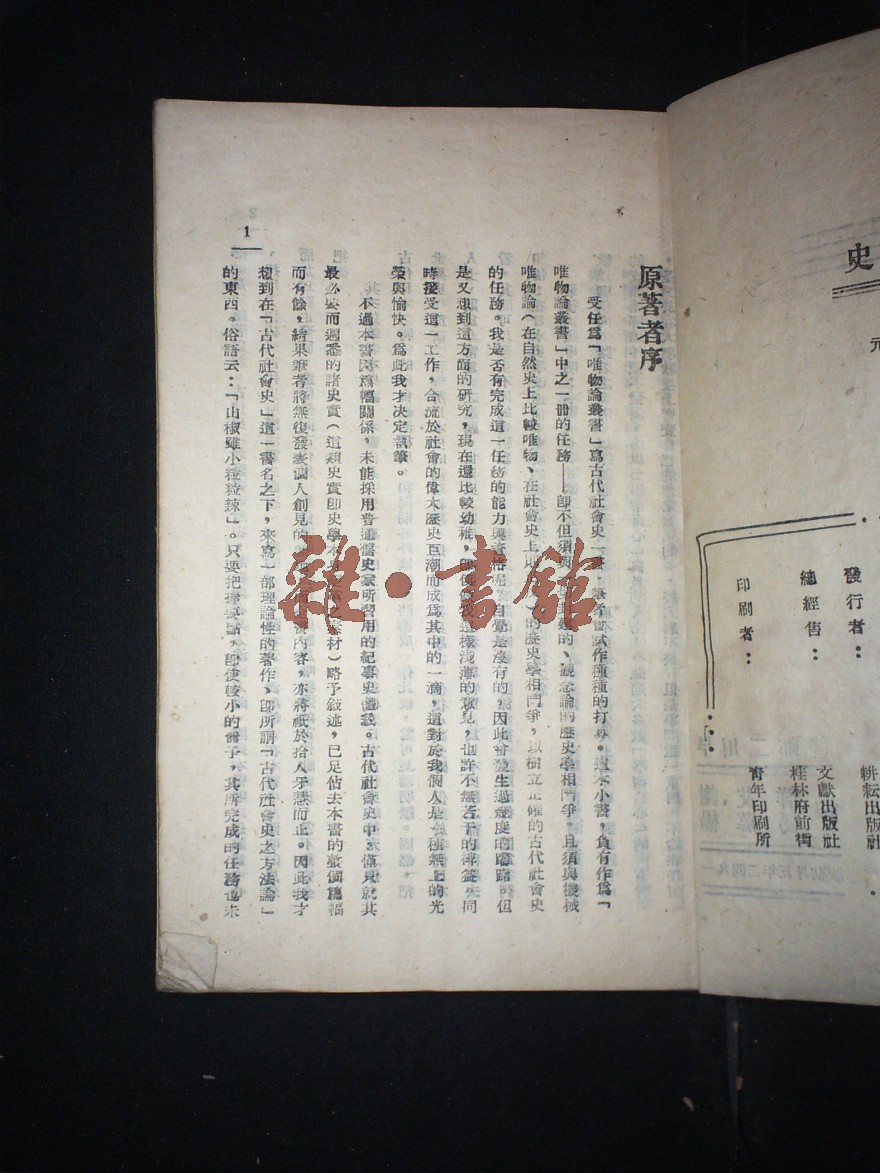 史
元
發行者：
總經售：
印刷者：
耕耘出版社
文獻出版社
桂林府前街
青年印刷所
原著者序
受任爲「唯物論叢書」寫古代社會史一書，筆者曾試作種種的打算。這本小書，負有作爲「
唯物論叢書」中之一冊的任務——卽不但須與 的、觀念論的歷史學相鬥爭，且須與機械
唯物論（在自然史上比較唯物、在社會史上 ）的歷史學相鬥爭，以樹立正確的古代社會史
的任務。我是否有完成這一任務的能力與資格呢 自覺是沒有的，因此曾發生過 度的 。但
是又想到這方面的研究，現在還比較幼稚，卽使像我這樣淺薄的意見，也許不無若干的裨益。同
時接受這一工作，合流於社會的偉大歷史巨潮而成爲其中的一滴，這對於我個人是一種無上的光
榮與愉快。爲此我才決定執筆。
不過本書因篇幅關係，未能採用普通舊史家所習用的紀事史體裁。古代社會史中，僅只就其
最必要而週悉的諸史實（這類史實卽史學本身 之素材）略予敍述，已足佔去本書的整個篇幅
而有餘，結果筆者將無復發表個人創見的 ，而 書內容，亦將祇於拾人牙慧而止。因此我才
想到在「古代社會史」這一書名之下，來寫一部理論性的著作，卽所謂「古代社會史之方法論」
的東西。俗語云：「山椒雖小粒粒辣」。只要把握要點，卽使較小的冊子，其所完成的任務也未
1
雜·書館